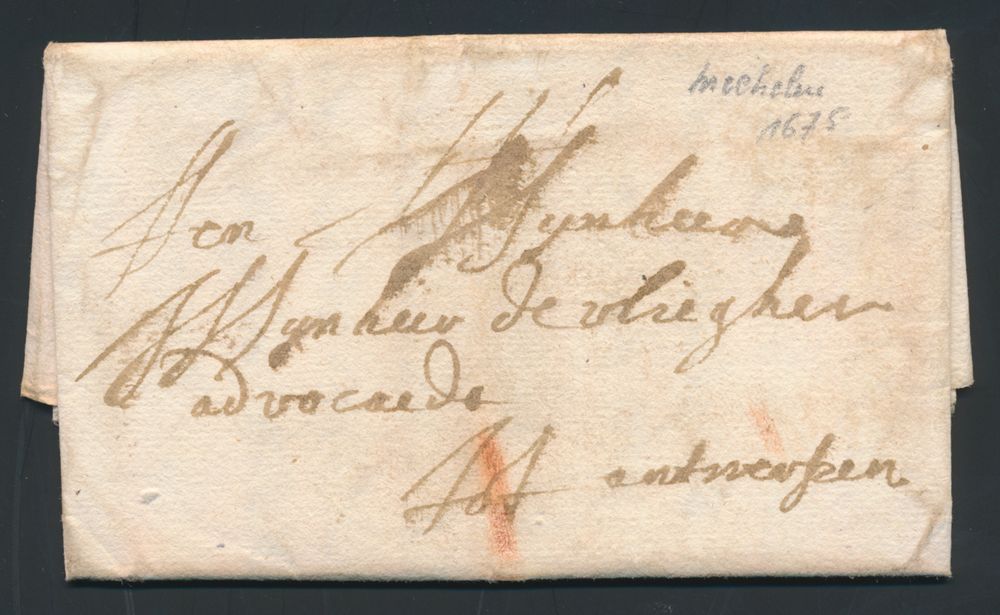 mechelen
1675
Aen Mynheere
Mynheer de vliegher
advocaede
tot antwerpen.